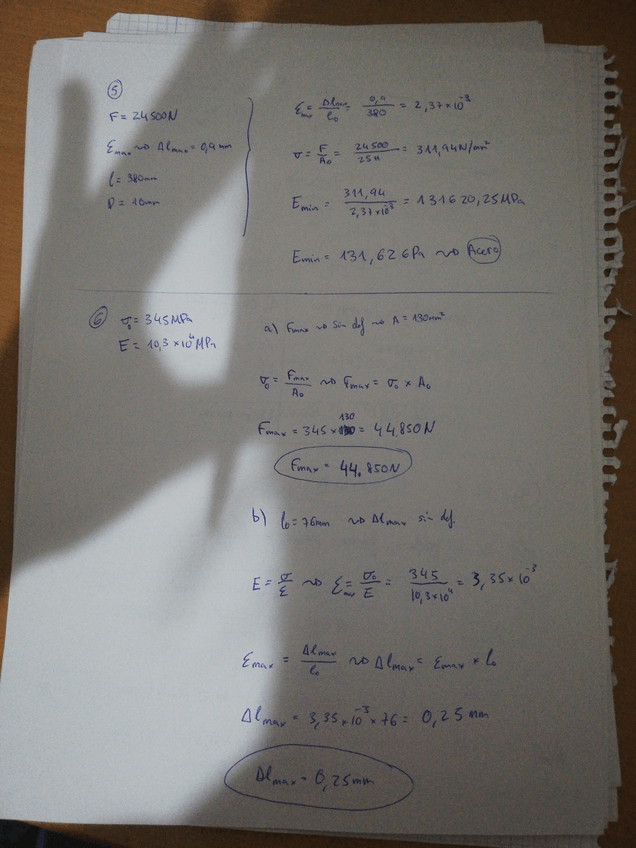 5
F = 24500N
Emax ~> Δlmax = 0,9mm
l = 380mm
D = 10mm
εmax = Δlmax/l₀ = 0,9/380 = 2,37×10⁻³
σ = F/A₀ = 24500/25π = 311,94N/mm²
Emin = 311,94/2,37×10⁻³ = 131620,25MPa
Emin = 131,62GPa ~> Acero
6
σ₀ = 345MPa
E = 10,3×10⁴MPa
a) Fmax ~> sin def ~> A = 130mm²
σ₀ = Fmax/A₀ ~> Fmax = σ₀ × A₀
Fmax = 345×130 = 44.850N
Fmax = 44.850N
b) l₀ = 76mm ~> Δlmax sin def.
E = σ/ε ~> εmax = σ₀/E = 345/10,3×10⁴ = 3,35×10⁻³
εmax = Δlmax/l₀ ~> Δlmax = εmax × l₀
Δlmax = 3,35×10⁻³×76 = 0,25mm
Δlmax = 0,25mm